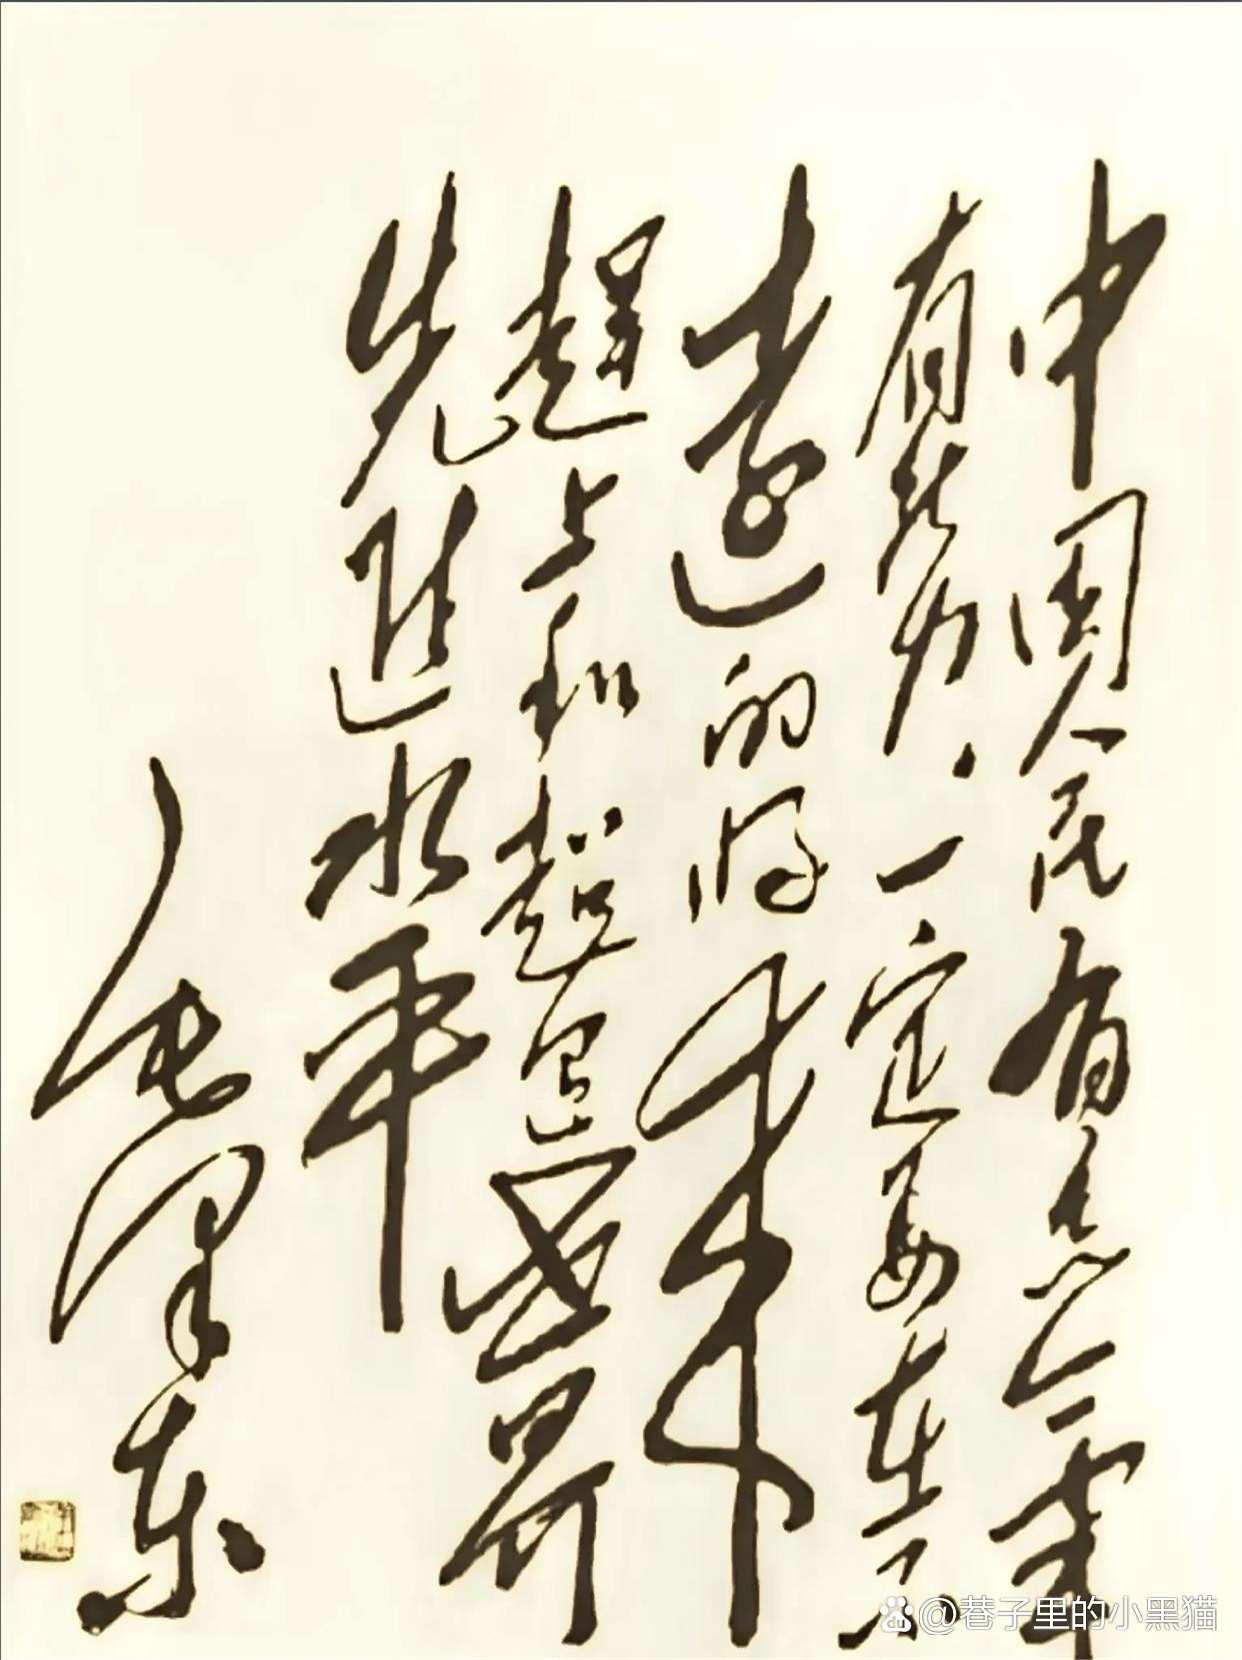 中國人民有志氣
有能力、一定要在不
遠的将來
趕上和超過世界
先進水平
毛澤东
@巷子里的小黑猫